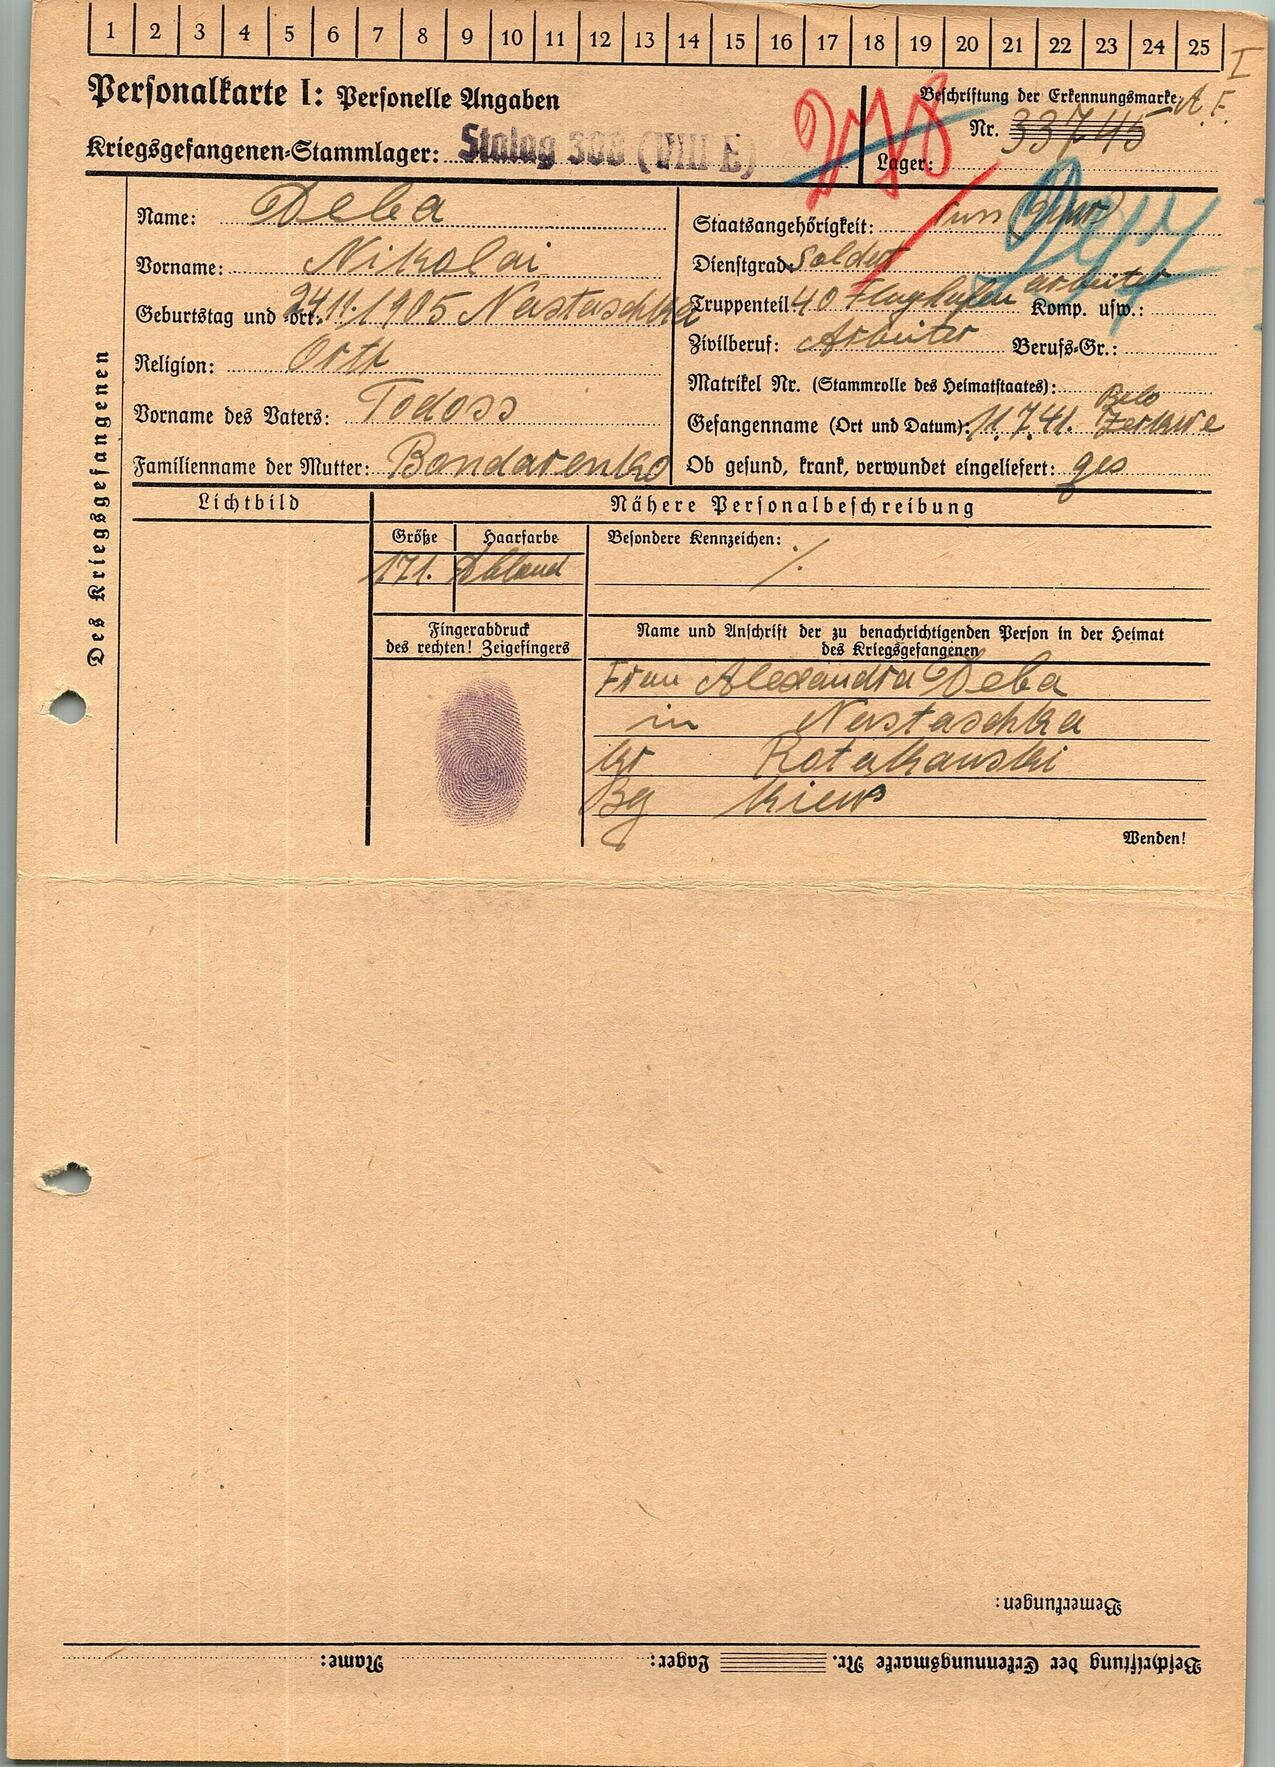 1 2 3 4 5 6 7 8 9 10 11 12 13 14 15 16 17 18 19 20 21 22 23 24 25
I
Personalkarte I: Personelle Angaben
Beschriftung der Erkennungsmarke
A. F.
Nr. 33745
Kriegsgefangenen-Stammlager: Stalag 308 (VIII E)
Lager:
Des Kriegsgefangenen
Name: Deba
Vorname: Nikolai
Geburtstag und -ort: 24.11.1905 Nastaschka
Religion: Orth
Vorname des Vaters: Todoss
Familienname der Mutter: Bondarenko
Staatsangehörigkeit: russ
Dienstgrad: Soldat
Truppenteil: 40 Flughafen arbeiter Komp. usw.:
Zivilberuf: Arbeiter Berufs-Gr.:
Matrikel Nr. (Stammrolle des Heimatstaates):
Gefangennahme (Ort und Datum): 11.7.41. Belo Zerkwe
Ob gesund, krank, verwundet eingeliefert: ges
Lichtbild
Nähere Personalbeschreibung
Größe Haarfarbe
171. Dbland
Besondere Kennzeichen: ./.
Fingerabdruck
des rechten! Zeigefingers
Name und Anschrift der zu benachrichtigenden Person in der Heimat
des Kriegsgefangenen
Frau Alexandra Deba
in Nastaschka
Kr Rotakauski
Bg Kiew
Wenden!
Bemerkungen:
Beschriftung der Erkennungsmarke Nr. Lager: Name: